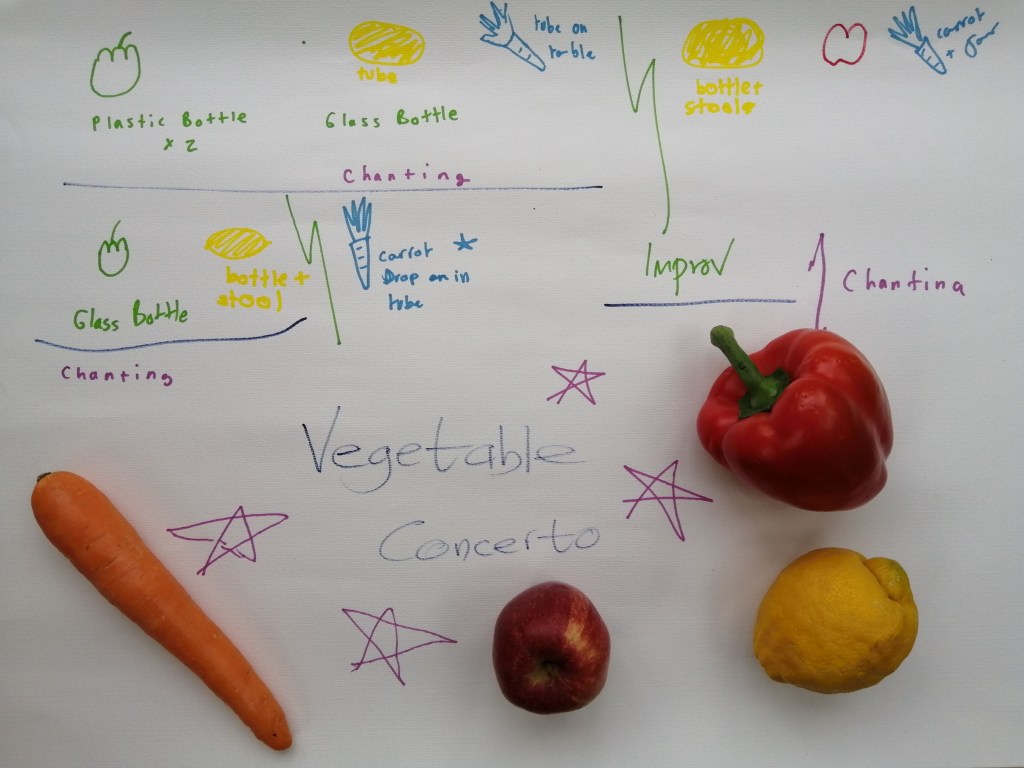 Plastic Bottle
x 2
tube
Glass Bottle
tube on
table
bottle+
stools
carrot
+ Jar
Chanting
Glass Bottle
bottle+
stool
carrot
Drop on in
tube
Improv
Chanting
Chanting
Vegetable
Concerto